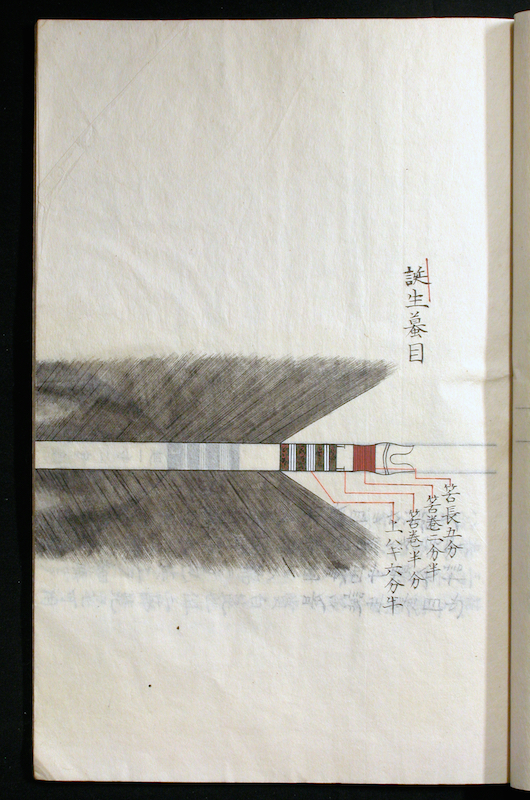 誕生蟇目
筈長五分
筈巻二分半
筈巻半分
二八寸六分半